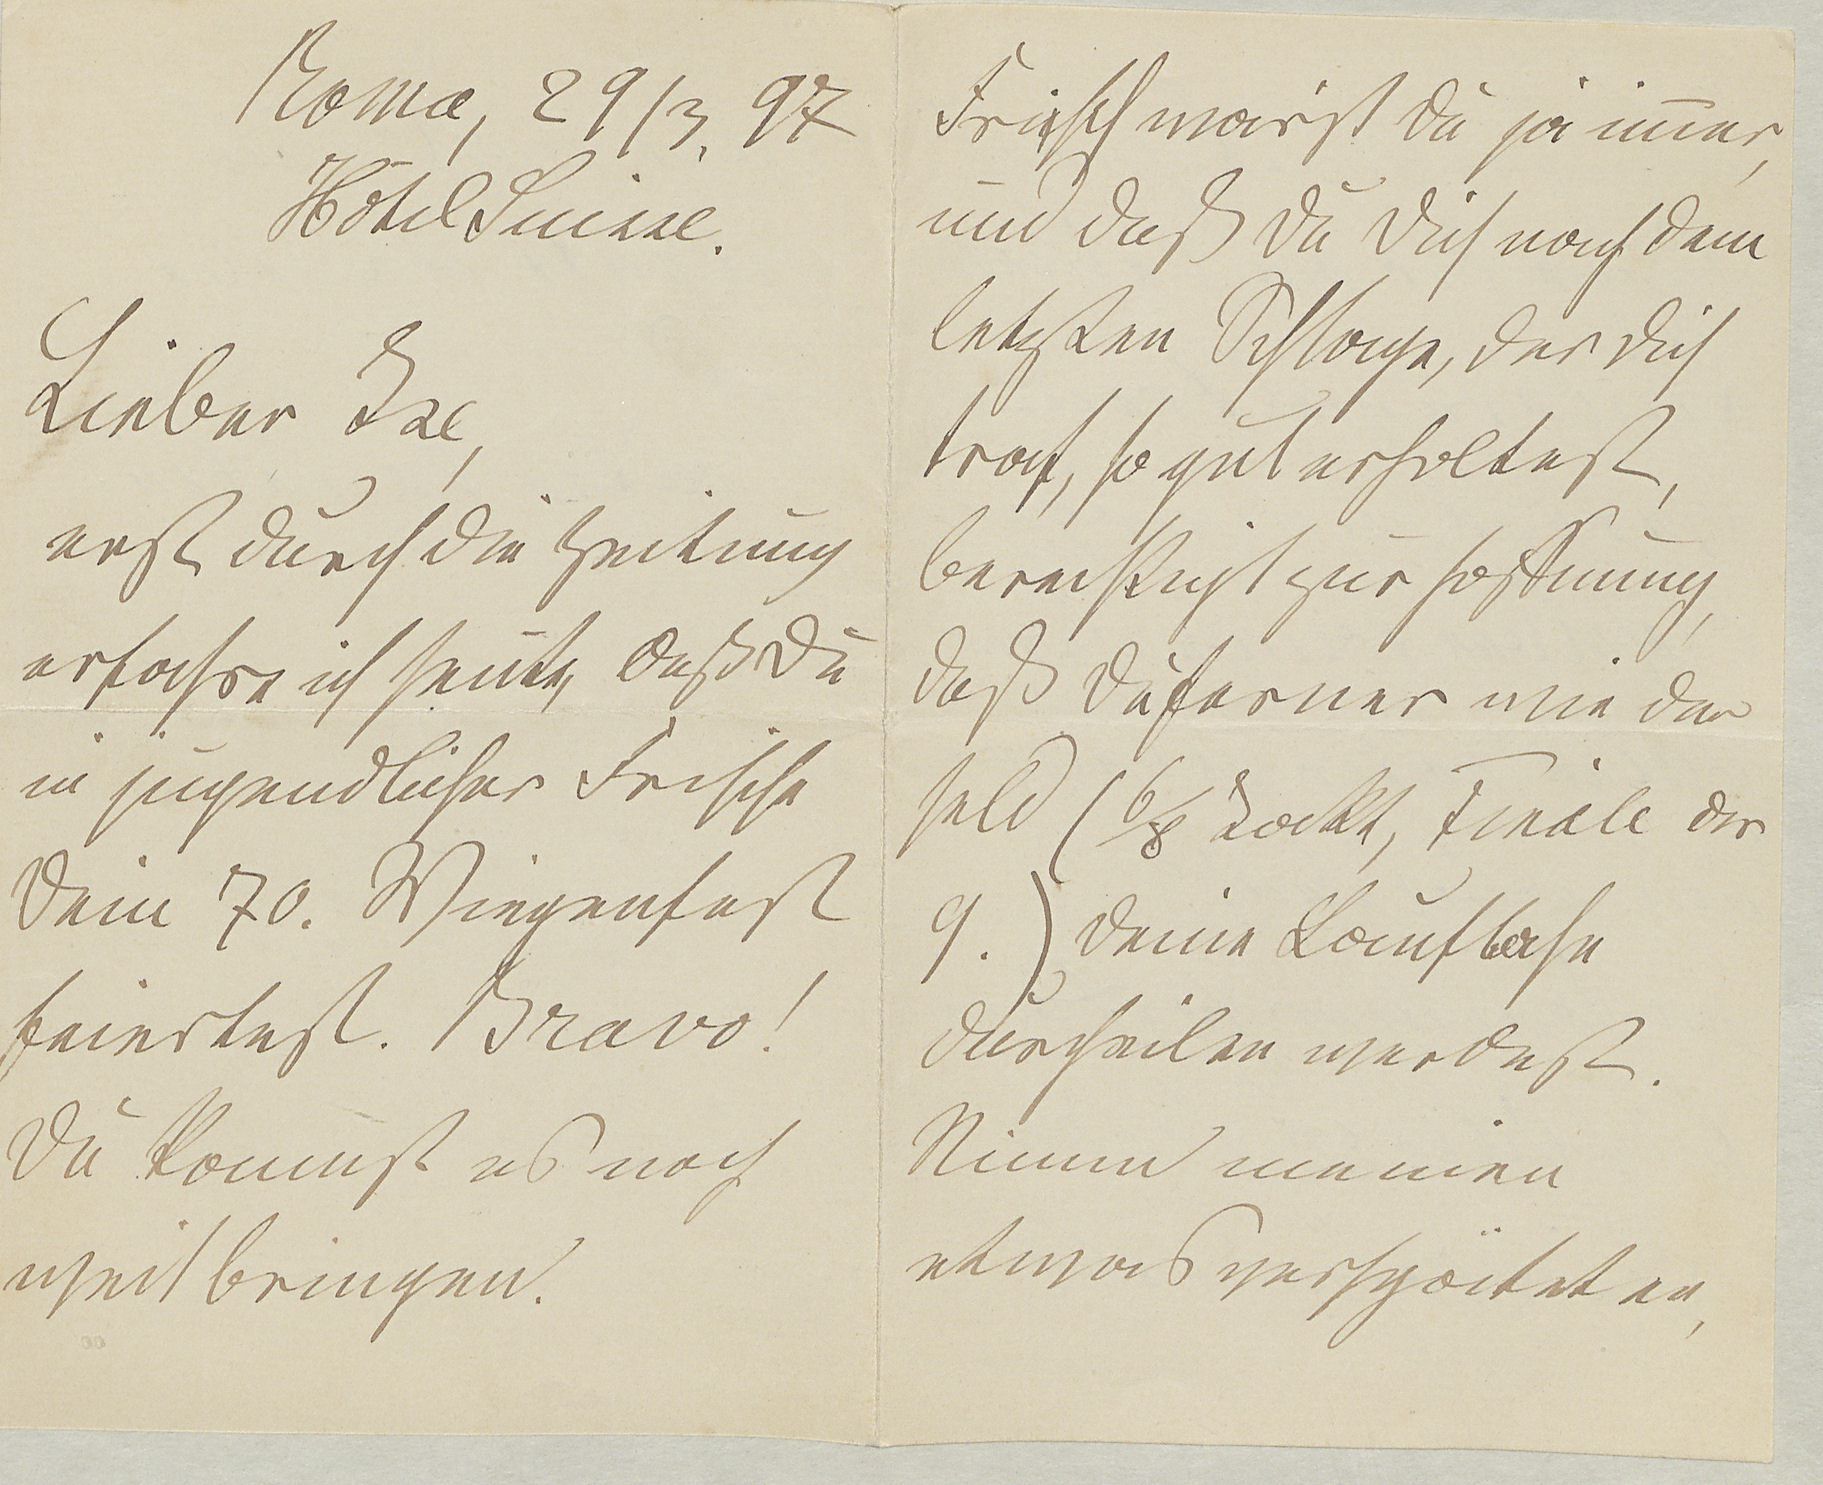 Roma, 29/3. 97
Hôtel Suisse.
Lieber Ise,
erst durch die Zeitung
erfahre ich heute, daß Du
in jugendlicher Frische
Dein 70. Wiegenfest
feiertest. Bravo!
Du kannst es noch
weit bringen.
Frisch warst Du ja im̅er,
und daß Du Dich nach dem
letzten Schlage, der Dich
traf, so gut erholtest,
berechtigt zur Hoffnung,
daß Du ferner wie der
Held (6/8 Takt, Finale der
9.) Deine Laufbahn
durcheilen werdest.
Nimm meinen
etwas verspäteten,